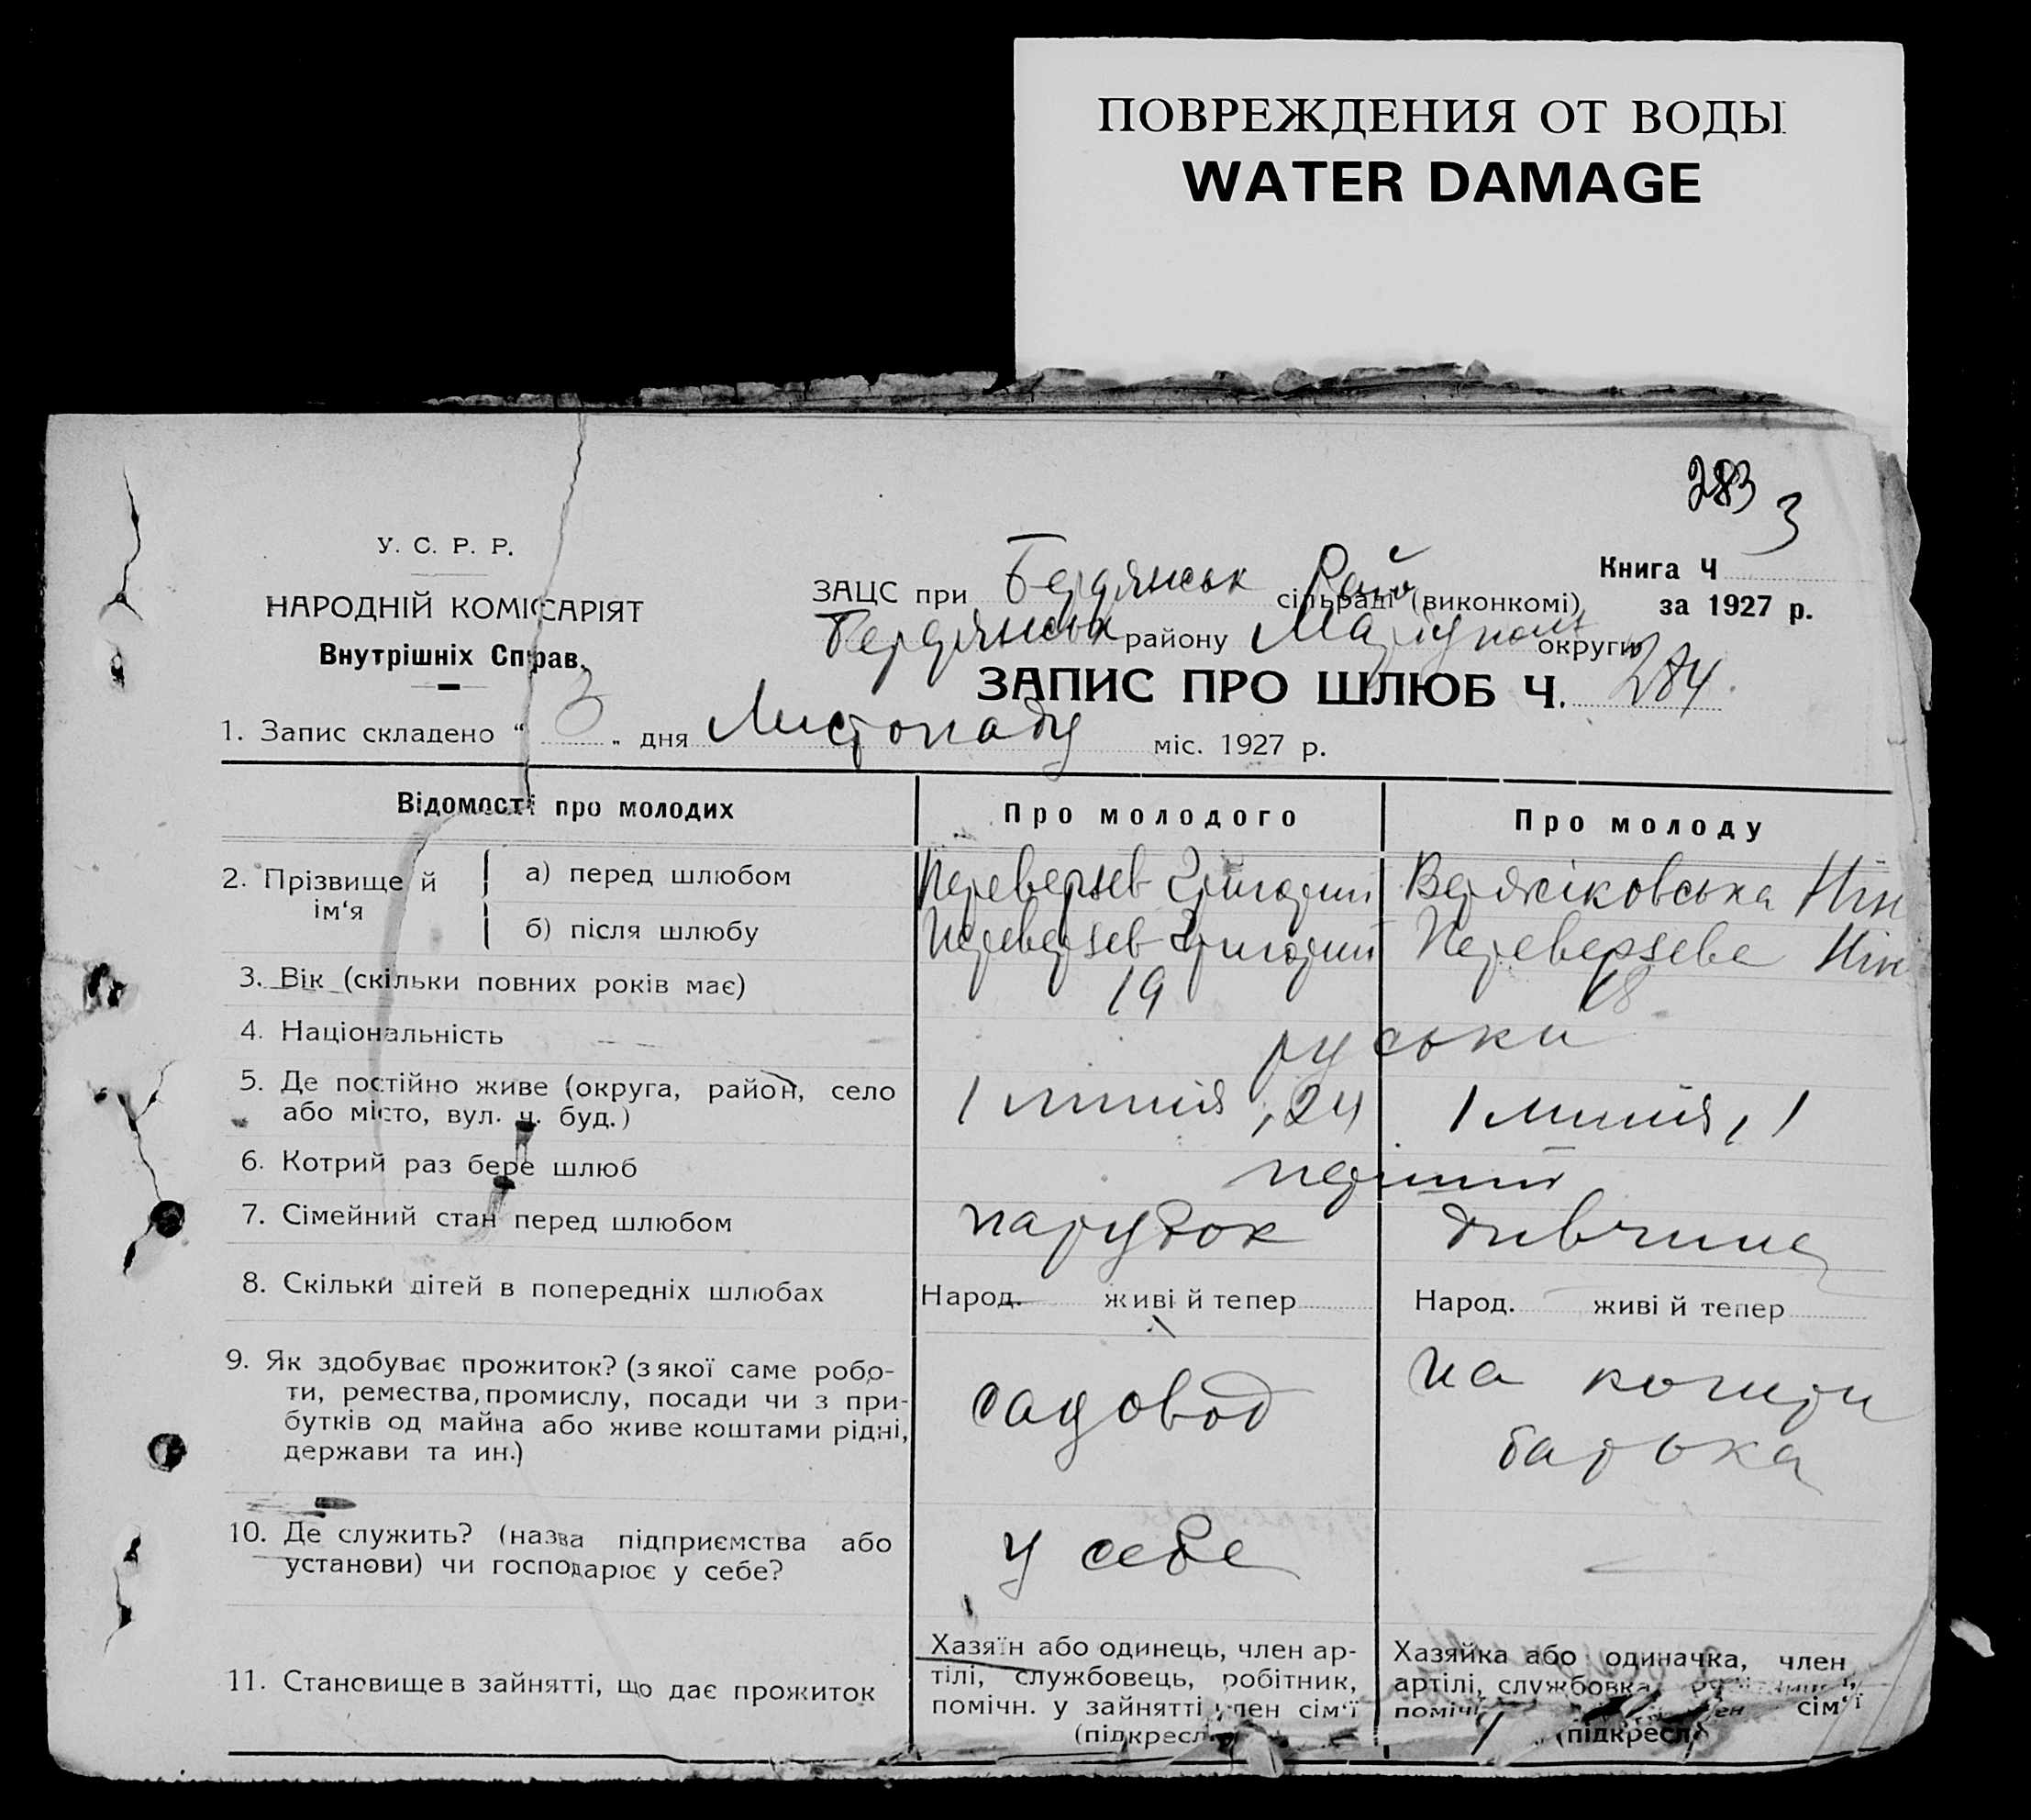 ПОВРЕЖДЕНИЯ ОТ ВОДЫ
WATER DAMAGE
283
3
У. С. Р. Р.
НАРОДНІЙ КОМІССАРІЯТ
Внутрішніх Справ.
Книга Ч
за 1927 р.
ЗАЦС при Бердянськ Рай сільраді (виконкомі)
Бердянськ району Маріупольс округи
ЗАПИС ПРО ШЛЮБ Ч. 284
1. Запис складено “ 3 „ дня Листопаду міс. 1927 р.
Відомості про молодих Про молодого Про молоду
2. Прізвище й ім‘я
а) перед шлюбом Переверзев Григорий Вержіковська Нін
б) після шлюбу Переверзев Григорий Переверзева Нін
3. Вік (скільки повних років має) 19 18
4. Національність руськи
5. Де постійно живе (округа, район, село
або місто, вул. ч. буд.) 1 линия, 24 1 линия, 1
6. Котрий раз бере шлюб перший
7. Сімейний стан перед шлюбом парубок дивчина
8. Скільки дітей в попередніх шлюбах Народ. живі й тепер Народ. живі й тепер
9. Як здобуває прожиток? (з якої саме робо-
ти, ремества, промислу, посади чи з при-
бутків од майна або живе коштами рідні,
держави та ин.)
садовод
на кошти
батька
10. Де служить? (назва підприємства або
установи) чи господарює у себе?
у себе
11. Становище в зайнятті, що дає прожиток
Хазяїн або одинець, член ар-
тілі, службовець, робітник,
помічн. у зайнятті член сім‘ї
(підкресл.
Хазяйка або одиначка, член
артілі, службовка,
помічн. сім‘ї
(підкресл.